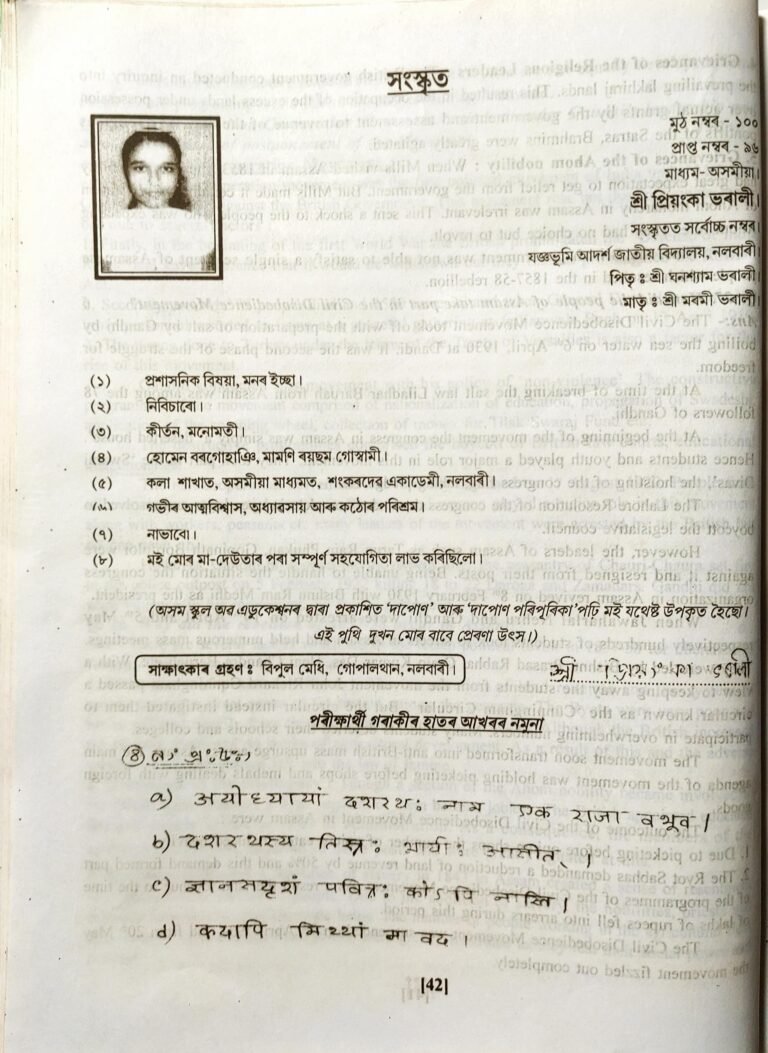 সংস্কৃত
মুঠ নম্বৰ - ১০০
প্ৰাপ্ত নম্বৰ - ৯৬
মাধ্যম - অসমীয়া।
শ্ৰী প্ৰিয়ংকা ভৰালী।
সংস্কৃতত সৰ্বোচ্চ নম্বৰ।
যজ্ঞভূমি আদৰ্শ জাতীয় বিদ্যালয়, নলবাৰী।
পিতৃ : শ্ৰী ঘনশ্যাম ভৰালী।
মাতৃ : শ্ৰী মৰমী ভৰালী।
(১) প্ৰশাসনিক বিষয়া, মনৰ ইচ্ছা।
(২) নিবিচাৰো।
(৩) কীৰ্তন, মনোমতী।
(৪) হোমেন বৰগোহাঞি, মামণি ৰয়ছম গোস্বামী।
(৫) কলা শাখাত, অসমীয়া মাধ্যমত, শংকৰদেৱ একাডেমী, নলবাৰী।
(৬) গভীৰ আত্মবিশ্বাস, অধ্যাৱসায় আৰু কঠোৰ পৰিশ্ৰম।
(৭) নাভাবো।
(৮) মই মোৰ মা-দেউতাৰ পৰা সম্পূৰ্ণ সহযোগিতা লাভ কৰিছিলো।
(অসম স্কুল অৱ এডুকেশ্যনৰ দ্বাৰা প্ৰকাশিত 'দাপোণ' আৰু 'দাপোণ পৰিপূৰিকা' পঢ়ি মই যথেষ্ট উপকৃত হৈছো।
এই পুথি দুখন মোৰ বাবে প্ৰেৰণা উৎস।)
সাক্ষাৎকাৰ গ্ৰহণ : বিপুল মেধি, গোপালথান, নলবাৰী।
শ্ৰী প্ৰিয়ংকা ভৰালী
পৰীক্ষাৰ্থী গৰাকীৰ হাতৰ আখৰৰ নমুনা
a) अयोध्यायां दशरथः नाम एक राजा वभुव।
b) दशरथस्य तिस्त्रः भार्याः आसीत्।
c) ज्ञानसदृशं पवित्रः कोऽपि नास्ति।
d) कदापि मिथ्यां मा वद।
[42]